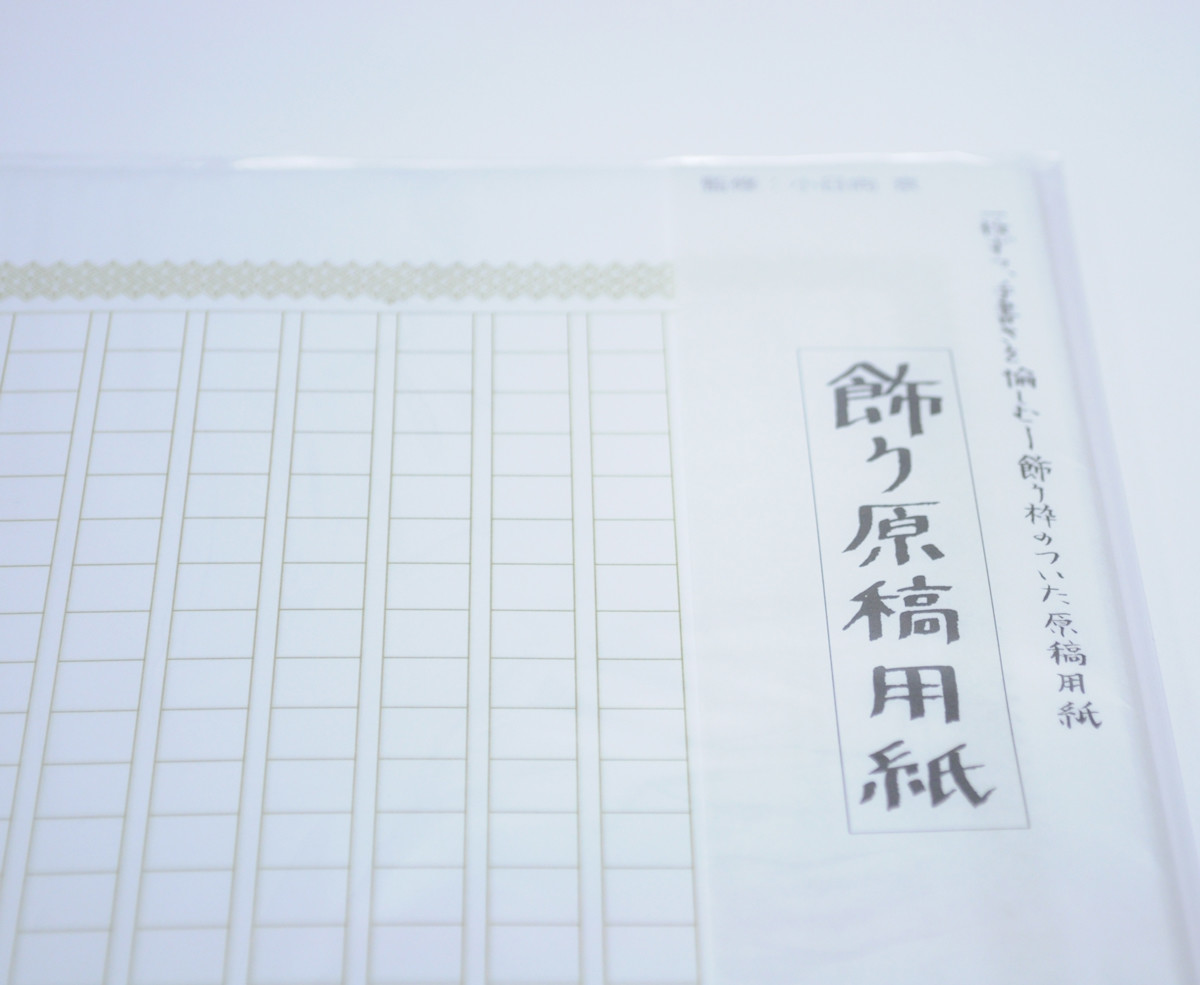 手書きを愉しむー飾り枠のついた原稿用紙
飾り原稿用紙